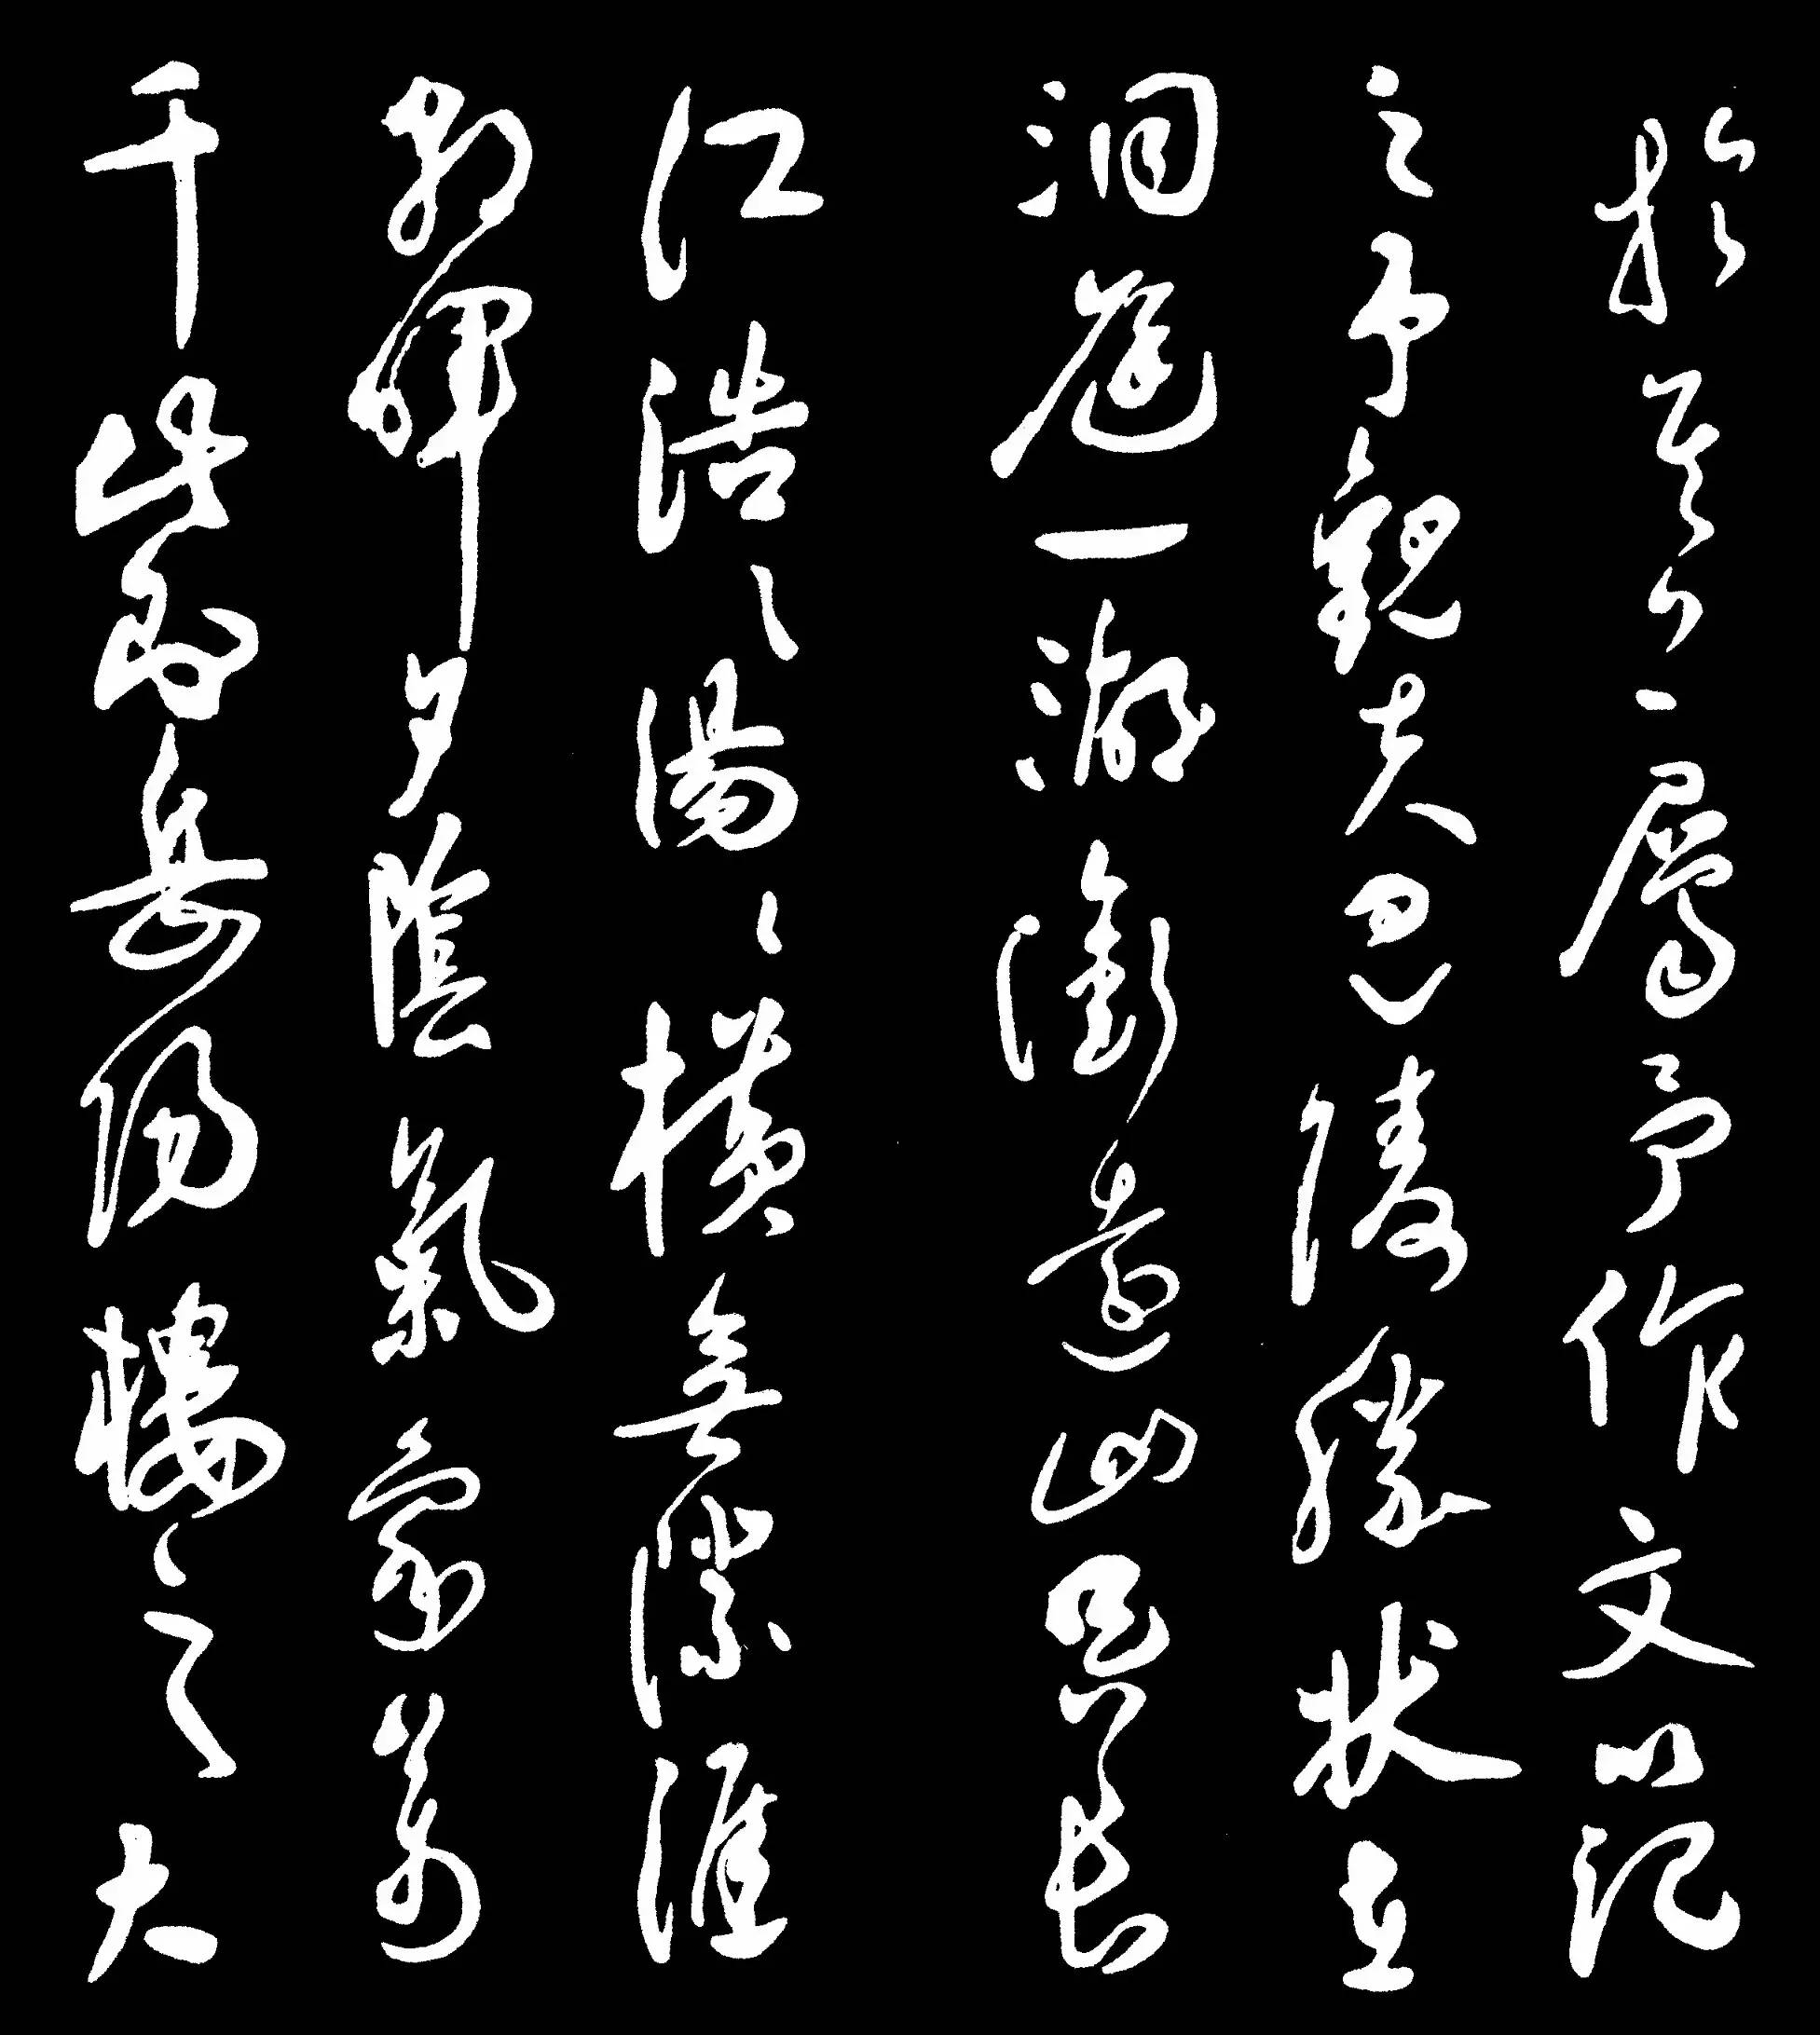 於其上屬予作文以記
之予觀夫巴陵勝狀在
洞庭一湖銜遠山吞長
江浩〻湯〻橫無際涯
朝暉夕陰氣象萬
千此則岳陽樓之大